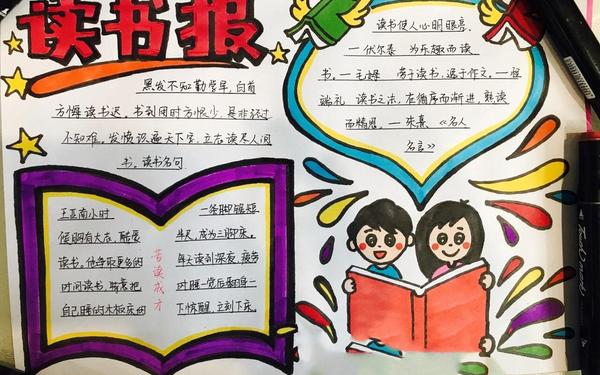 读书报
黑发不知勤学早，白首
方悔读书迟。书到用时方恨少，是非经过
不知难。发愤识遍天下字，立志读尽人间
书。读书名句
读书使人心明眼亮。
一伏尔泰 为乐趣而读
书。一毛姆 劳于读书，逸于作文。一程
端礼 读书之法，在循序而渐进，熟读
而精思。一朱熹 《名人
名言》
王亚南小时
候胸有大志，酷爱
读书。他争取更多的
时间读书，特意把
自己睡的木板床的
苦读成才
一条脚锯短
半尺，成为三脚床。
每天读到深夜，疲劳
时睡一觉后翻身一
下惊醒，立刻下床。